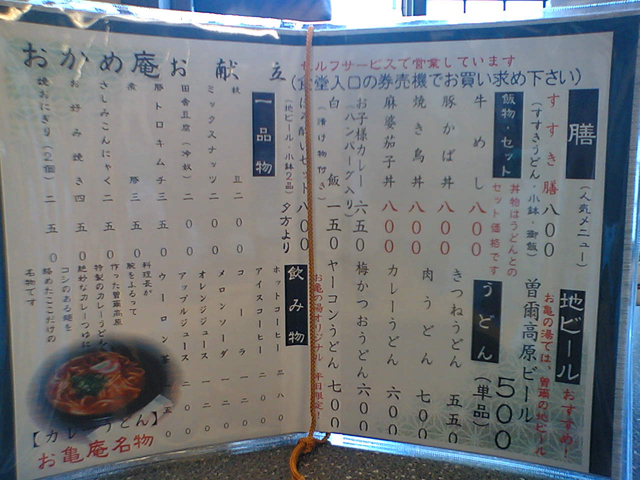 おかめ庵お献立
セルフサービスで営業しています
(食堂入口の券売機でお買い求め下さい)
膳
(人気メニュー)
すすき膳 八〇〇
(すすきうどん・小鉢・御飯)
飯物・セット
丼物はうどんとの
セット価格です
牛めし 八〇〇
豚かば丼 八〇〇
焼き鳥丼 八〇〇
麻婆茄子丼 八〇〇
お子様カレー 六五〇
(ハンバーグ入り)
白飯 一五〇
漬け物付き
ほろ酔いセット 八〇〇
(地ビール・小鉢2品) 夕方より
地ビール
おすすめ!
お亀の湯では、曽爾の地ビール
曽爾高原ビール 500
うどん
(単品)
きつねうどん 五五〇
肉うどん 七〇〇
カレーうどん 六〇〇
梅かつおうどん 六〇〇
ヤーコンうどん 七〇〇
お亀の湯オリジナル 平日限定!
一品物
枝豆 二〇〇
ミックスナッツ 二〇〇
田舎豆腐(冷奴) 二〇〇
豚トロキムチ 三五〇
煮豚 三五〇
さしみこんにゃく 二五〇
お好み焼き 四五〇
焼おにぎり(2個) 二五〇
飲み物
ホットコーヒー 二八〇
アイスコーヒー
メロンソーダ
コーラ
オレンジジュース 二〇〇
アップルジュース 二〇〇
ウーロン茶 一五〇
料理長が
腕を ふるって
作った曽爾高原
特製のカレーうどん
絶妙なカレーつゆに
コシのある麺を
絡めたここだけの
名物です
【カレーうどん】
お亀庵名物